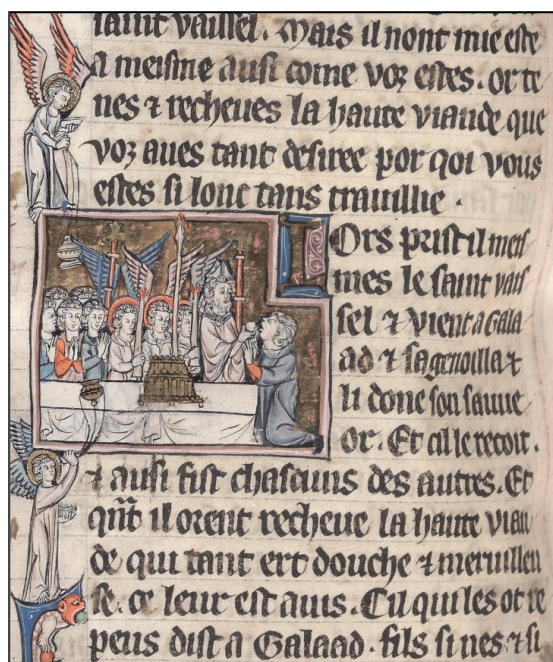 saint vaissel. Mais il nont mie este
a meisme ausi come voz estes. or te
nes ⁊ recheues la haute viande que
voz aues tant desiree por qoi vous
estes si lonc tans trauillie.
Lors prist il meis
mes le saint vais
sel ⁊ vient a Gala
ad ⁊ sagenoilla ⁊
li done son sauue
or. Et cil le recoit.
⁊ ausi fist chascuns des autres. Et
qñt il orent recheue la haute vian
de qui tant ert douche ⁊ meruilleu
se. ce leur est auis. Cil qui les ot re
peus dist a Galaad. fils si nes ⁊ si